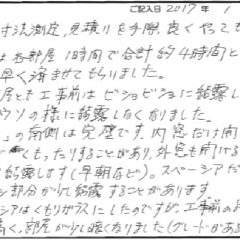 ご記入日 2017年 1
寸法測定,見積りを手際良くやっても
は各部屋1時間で合計約4時間と
早く済ませてもらいました。
屋とも工事前はビショビショに結露し
ウソの様に結露しなくなりました。
の南側は完璧です。内窓だけ開
くもったりすることがあり、外窓も開ける
結露しません(早朝など)。スペーシアだ
ン部分が少し結露することがあります。
シアはくもりガラスにしたのですが、工事前の
高く、部屋が少し暖くなりました(グレードがある